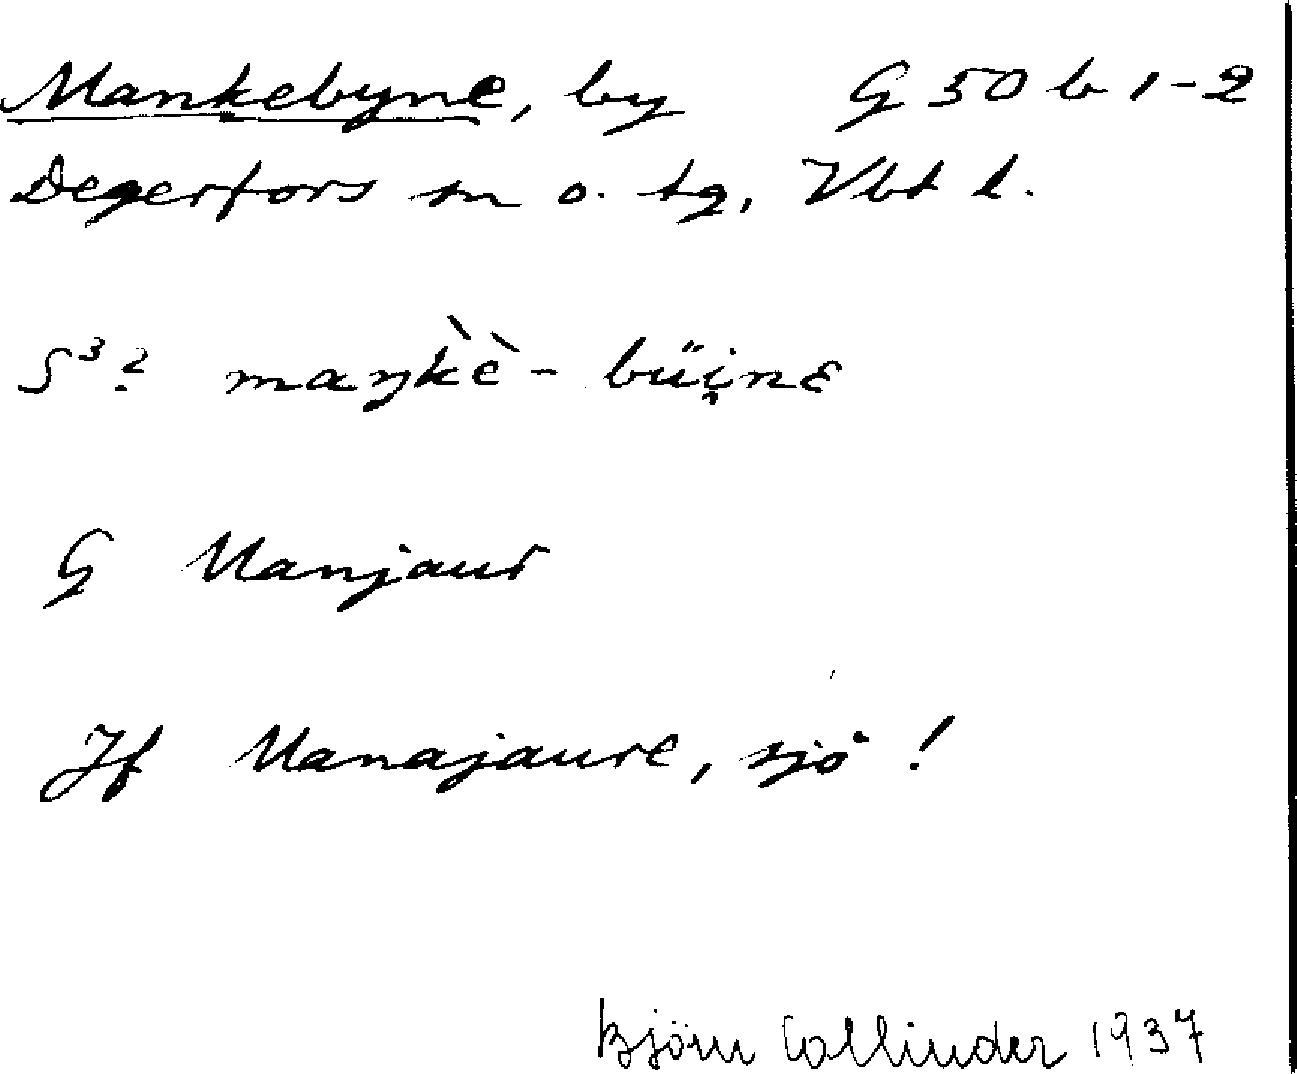 Mankebyne, by G 50 b 1-2
Degerfors sn o. tg, Vbt l.
S³? maŋk̀è - büi̯nɛ
G Manjaur
Jf Manajaure, sjö!
Björn Collinder 1937